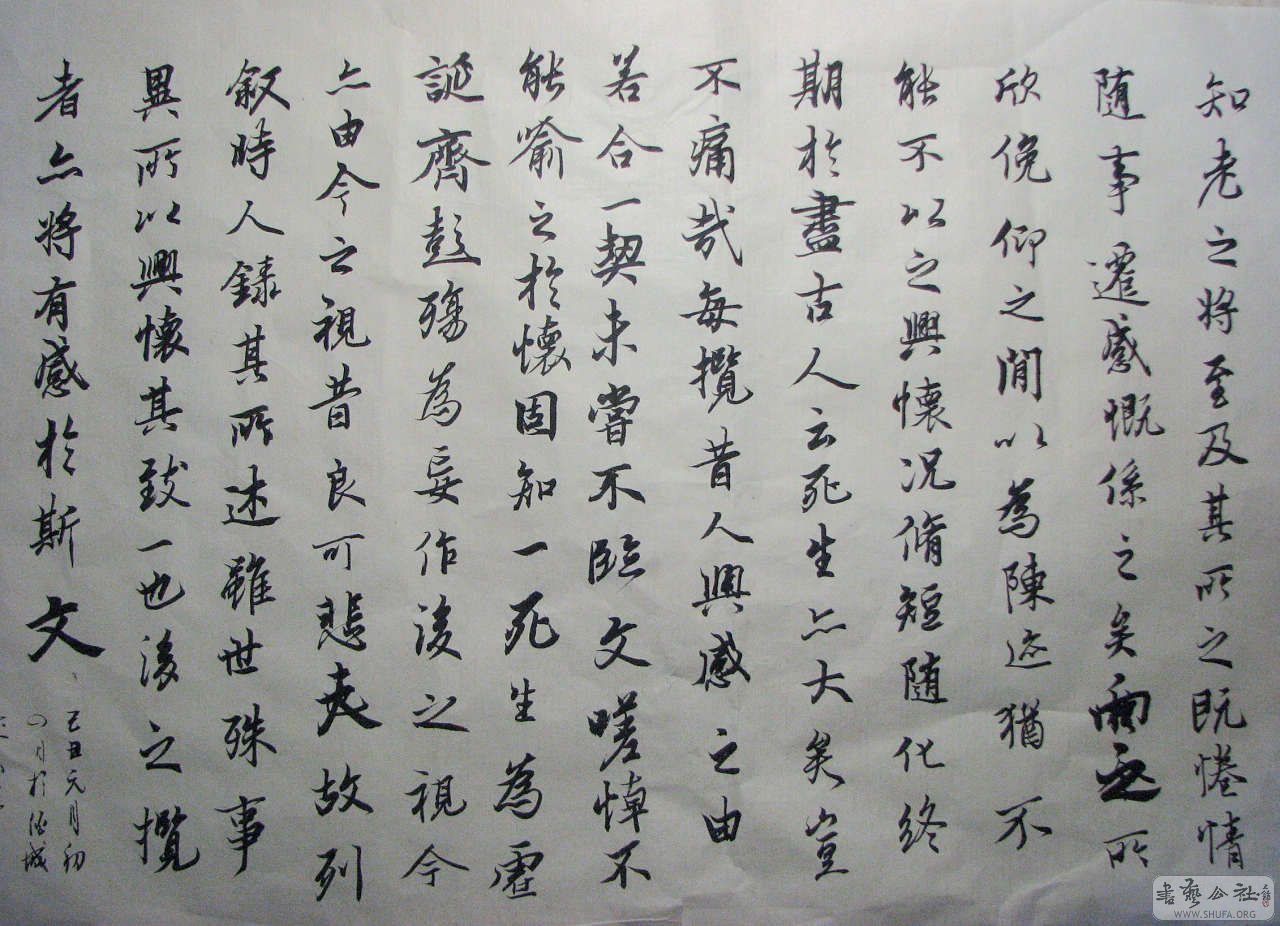 知老之将至及其所之既惓情
随事遷感慨係之矣向之所
欣俛仰之閒以為陳迹猶不
能不以之興懷况脩短随化終
期於盡古人云死生亦大矣豈
不痛哉每攬昔人興感之由
若合一契未嘗不臨文嗟悼不
能喻之於懷固知一死生為虛
誕齊彭殤為妄作後之視今
亦由今之視昔良可悲夫故列
叙時人錄其所述雖世殊事
異所以興懷其致一也後之攬
者亦将有感於斯文
己丑元月初
四月於
書藝公社
WWW.SHUFA.ORG